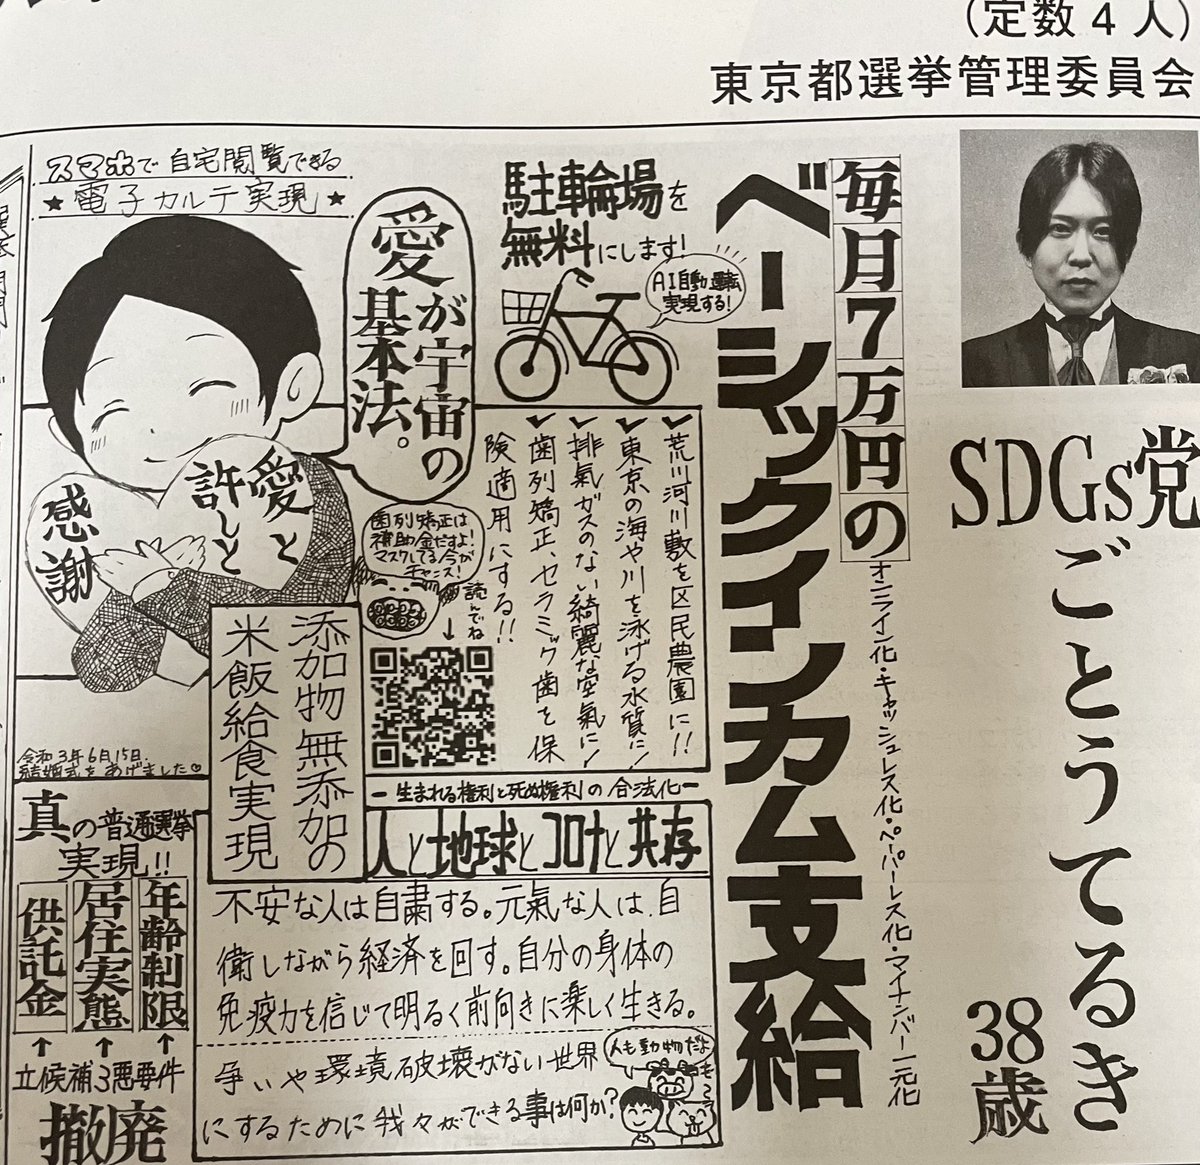 （定数４人）
東京都選挙管理委員会
SDGs党
ごとうてるき
38歳
毎月7万円の
ベーシックインカム支給
オンライン化・キャッシュレス化・ペーパーレス化・マイナンバー一元化
駐輪場を
無料にします!
AI自動運転
実現する!
✓荒川河川敷を区民農園に!!
✓東京の海や川を泳げる水質に!
✓排氣ガスのない綺麗な空氣に!
✓歯列矯正、セラミック歯を保
険適用にする!!
スマホで自宅閲覧できる
★電子カルテ実現★
愛が宇宙の
基本法。
愛と
許しと
感謝
歯列矯正は
補助金だすよ!
マスクしてる今が
チャンス!
読んでね
↓
添加物無添加の
米飯給食実現
令和3年6月15日
結婚式をあげました♡
ー生まれる権利と死ぬ権利の合法化ー
人と地球とコロナと共存
不安な人は自粛する。元氣な人は、自
衛しながら経済を回す。自分の身体の
免疫力を信じて明るく前向きに楽しく生きる。
争いや環境破壊がない世界
にするために我々ができる事は何か?
人も動物だよ
真の普通選挙
実現!!
年齢制限
居住実態
供託金
↑ ↑ ↑
立候補3悪要件
撤廃